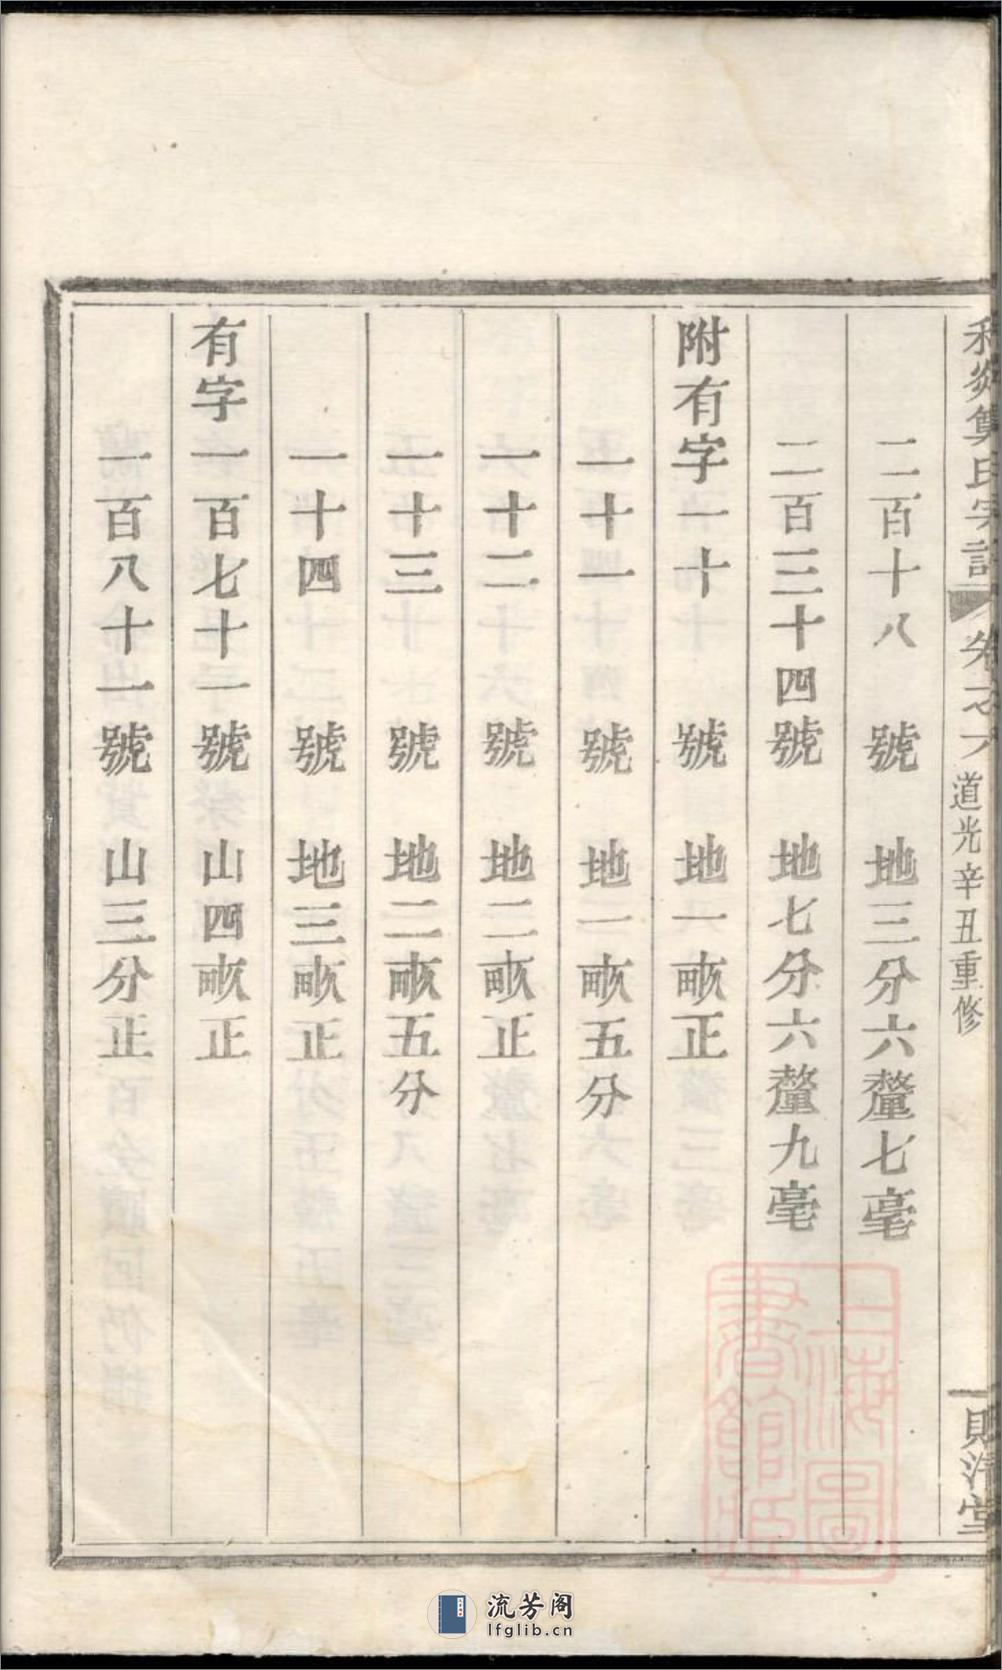 氏宗譜
卷之
道光辛丑重修
堂
二百十八號 地三分六釐七毫
二百三十四號 地七分六釐九毫
附有字一十號 地一畝正
一十一號 地一畝五分
一十二號 地二畝正
一十三號 地二畝五分
一十四號 地三畝正
有字一百七十一號 山四畝正
一百八十一號 山三分正
上海圖書館藏
流芳阁
lfglib.cn